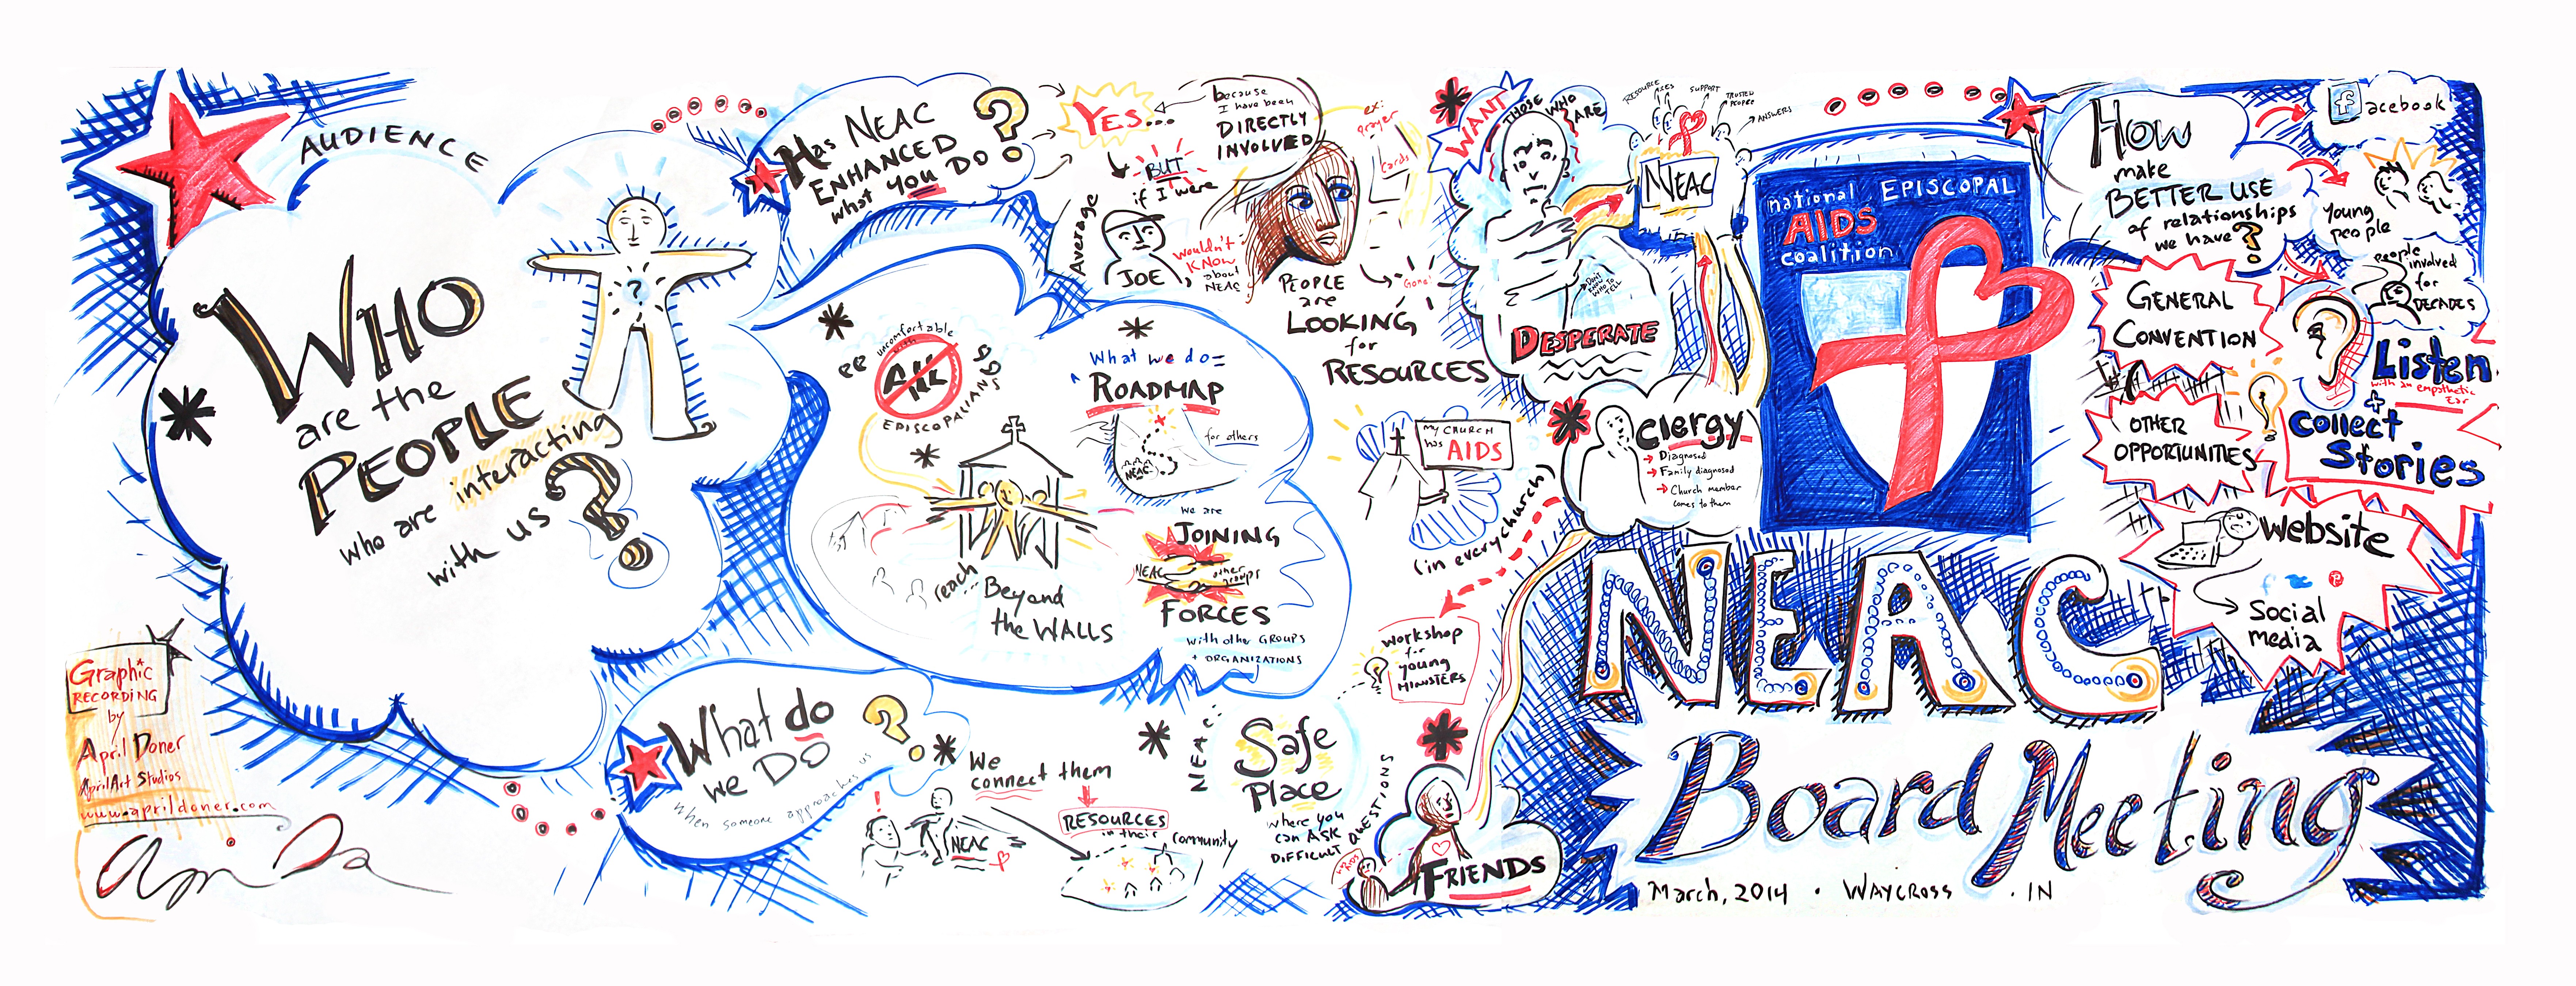 AUDIENCE
WHO
are the
PEOPLE
who are interacting
with us?
?
Graphic
RECORDING
by
April Doner
AprilArt Studios
www.aprildoner.com
Has NEAC
ENHANCED
what you DO?
YES...
because
I have been
DIRECTLY
INVOLVED
BUT
if I were
Average
JOE
wouldn't
KNOW
about
NEAC
ex:
Prayer
Cards
Gone!
PEOPLE
are
LOOKING
for
RESOURCES
uncomfortable
with
EPISCOPALIANS
What we do =
ROADMAP
for others
NEAC
reach...
Beyond
the WALLS
we are
JOINING
NEAC
other
groups
FORCES
with other GROUPS
+ ORGANIZATIONS
What do
we DO?
when someone approaches us
!
NEAC
We
connect them
RESOURCES
in their community
NEAC:
Safe
Place
where you
can ASK
DIFFICULT QUESTIONS
FRIENDS
WANT
THOSE WHO
ARE
DON'T
KNOW
WHO TO
TELL
DESPERATE
NEAC
SUPPORT
TRUSTED
PEOPLE
ANSWERS
MY CHURCH
has AIDS
(in every church)
clergy
Diagnosed
Family diagnosed
Church member
comes to them
workshop
for
young
MINISTERS
national EPISCOPAL
AIDS
coalition
NEAC
Board Meeting
March, 2014 • WAYCROSS • IN
How
make
BETTER USE
of relationships
we have?
facebook
Young
people
people
involved
for
DECADES
GENERAL
CONVENTION
OTHER
OPPORTUNITIES
Listen
with an empathetic
Ear
+
collect
Stories
website
social
media